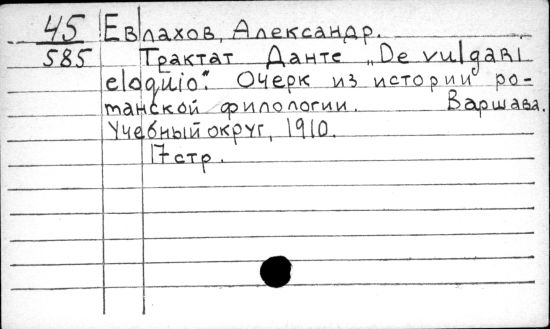 45 Евлахов, Александр.
585 Трактат Данте „De vulgari
eloquio“. Очерк из истории ро-
манской филологии. Варшава.
Учебный округ, 1910.
17 стр.